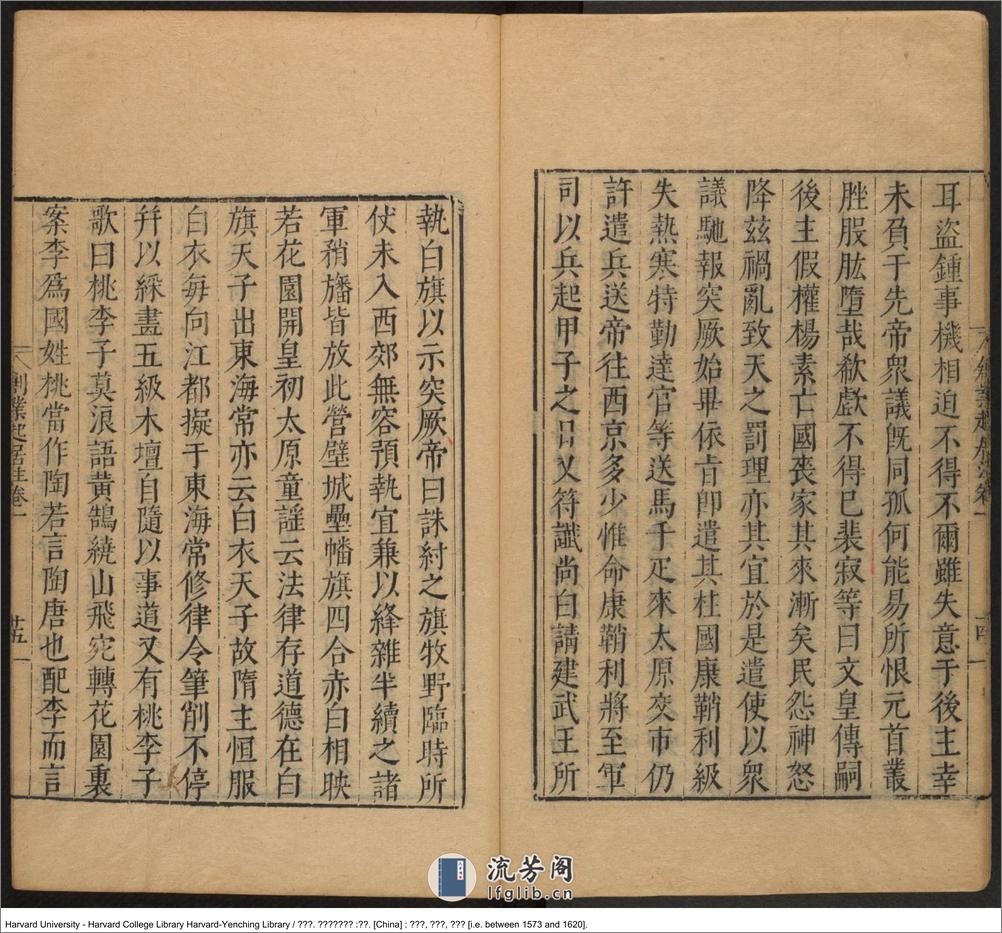 耳盜鍾事機相迫不得不爾雖失意于後主幸
未負于先帝衆議旣同孤何能易所恨元首叢
脞股肱墮哉欷歔不得已裴寂等曰文皇傳嗣
後主假權楊素亡國喪家其來漸矣民怨神怒
降茲禍亂致天之罰理亦其宜於是遣使以衆
議馳報突厥始畢依旨卽遣其柱國康鞘利級
失熱寒特勤達官等送馬千疋來太原交市仍
許遣兵送帝往西京多少惟命康鞘利將至軍
司以兵起甲子之日又符讖尚白請建武王所
執白旗以示突厥帝曰誅紂之旗牧野臨時所
仗未入西郊無容預執宜兼以絳雜半續之諸
軍矟旛皆放此營壁城壘幡旗四合赤白相映
若花園開皇初太原童謠云法律存道德在白
旗天子出東海常亦云白衣天子故隋主恒服
白衣每向江都擬于東海常修律令筆削不停
幷以綵畫五級木壇自隨以事道又有桃李子
歌曰桃李子莫浪語黃鵠繞山飛宛轉花園裏
案李爲國姓桃當作陶若言陶唐也配李而言
創業起居注卷一
廿五
流芳阁
lfglib.cn
Harvard University - Harvard College Library Harvard-Yenching Library / ???. ??????? :??. [China] : ???, ???, ??? [i.e. between 1573 and 1620].